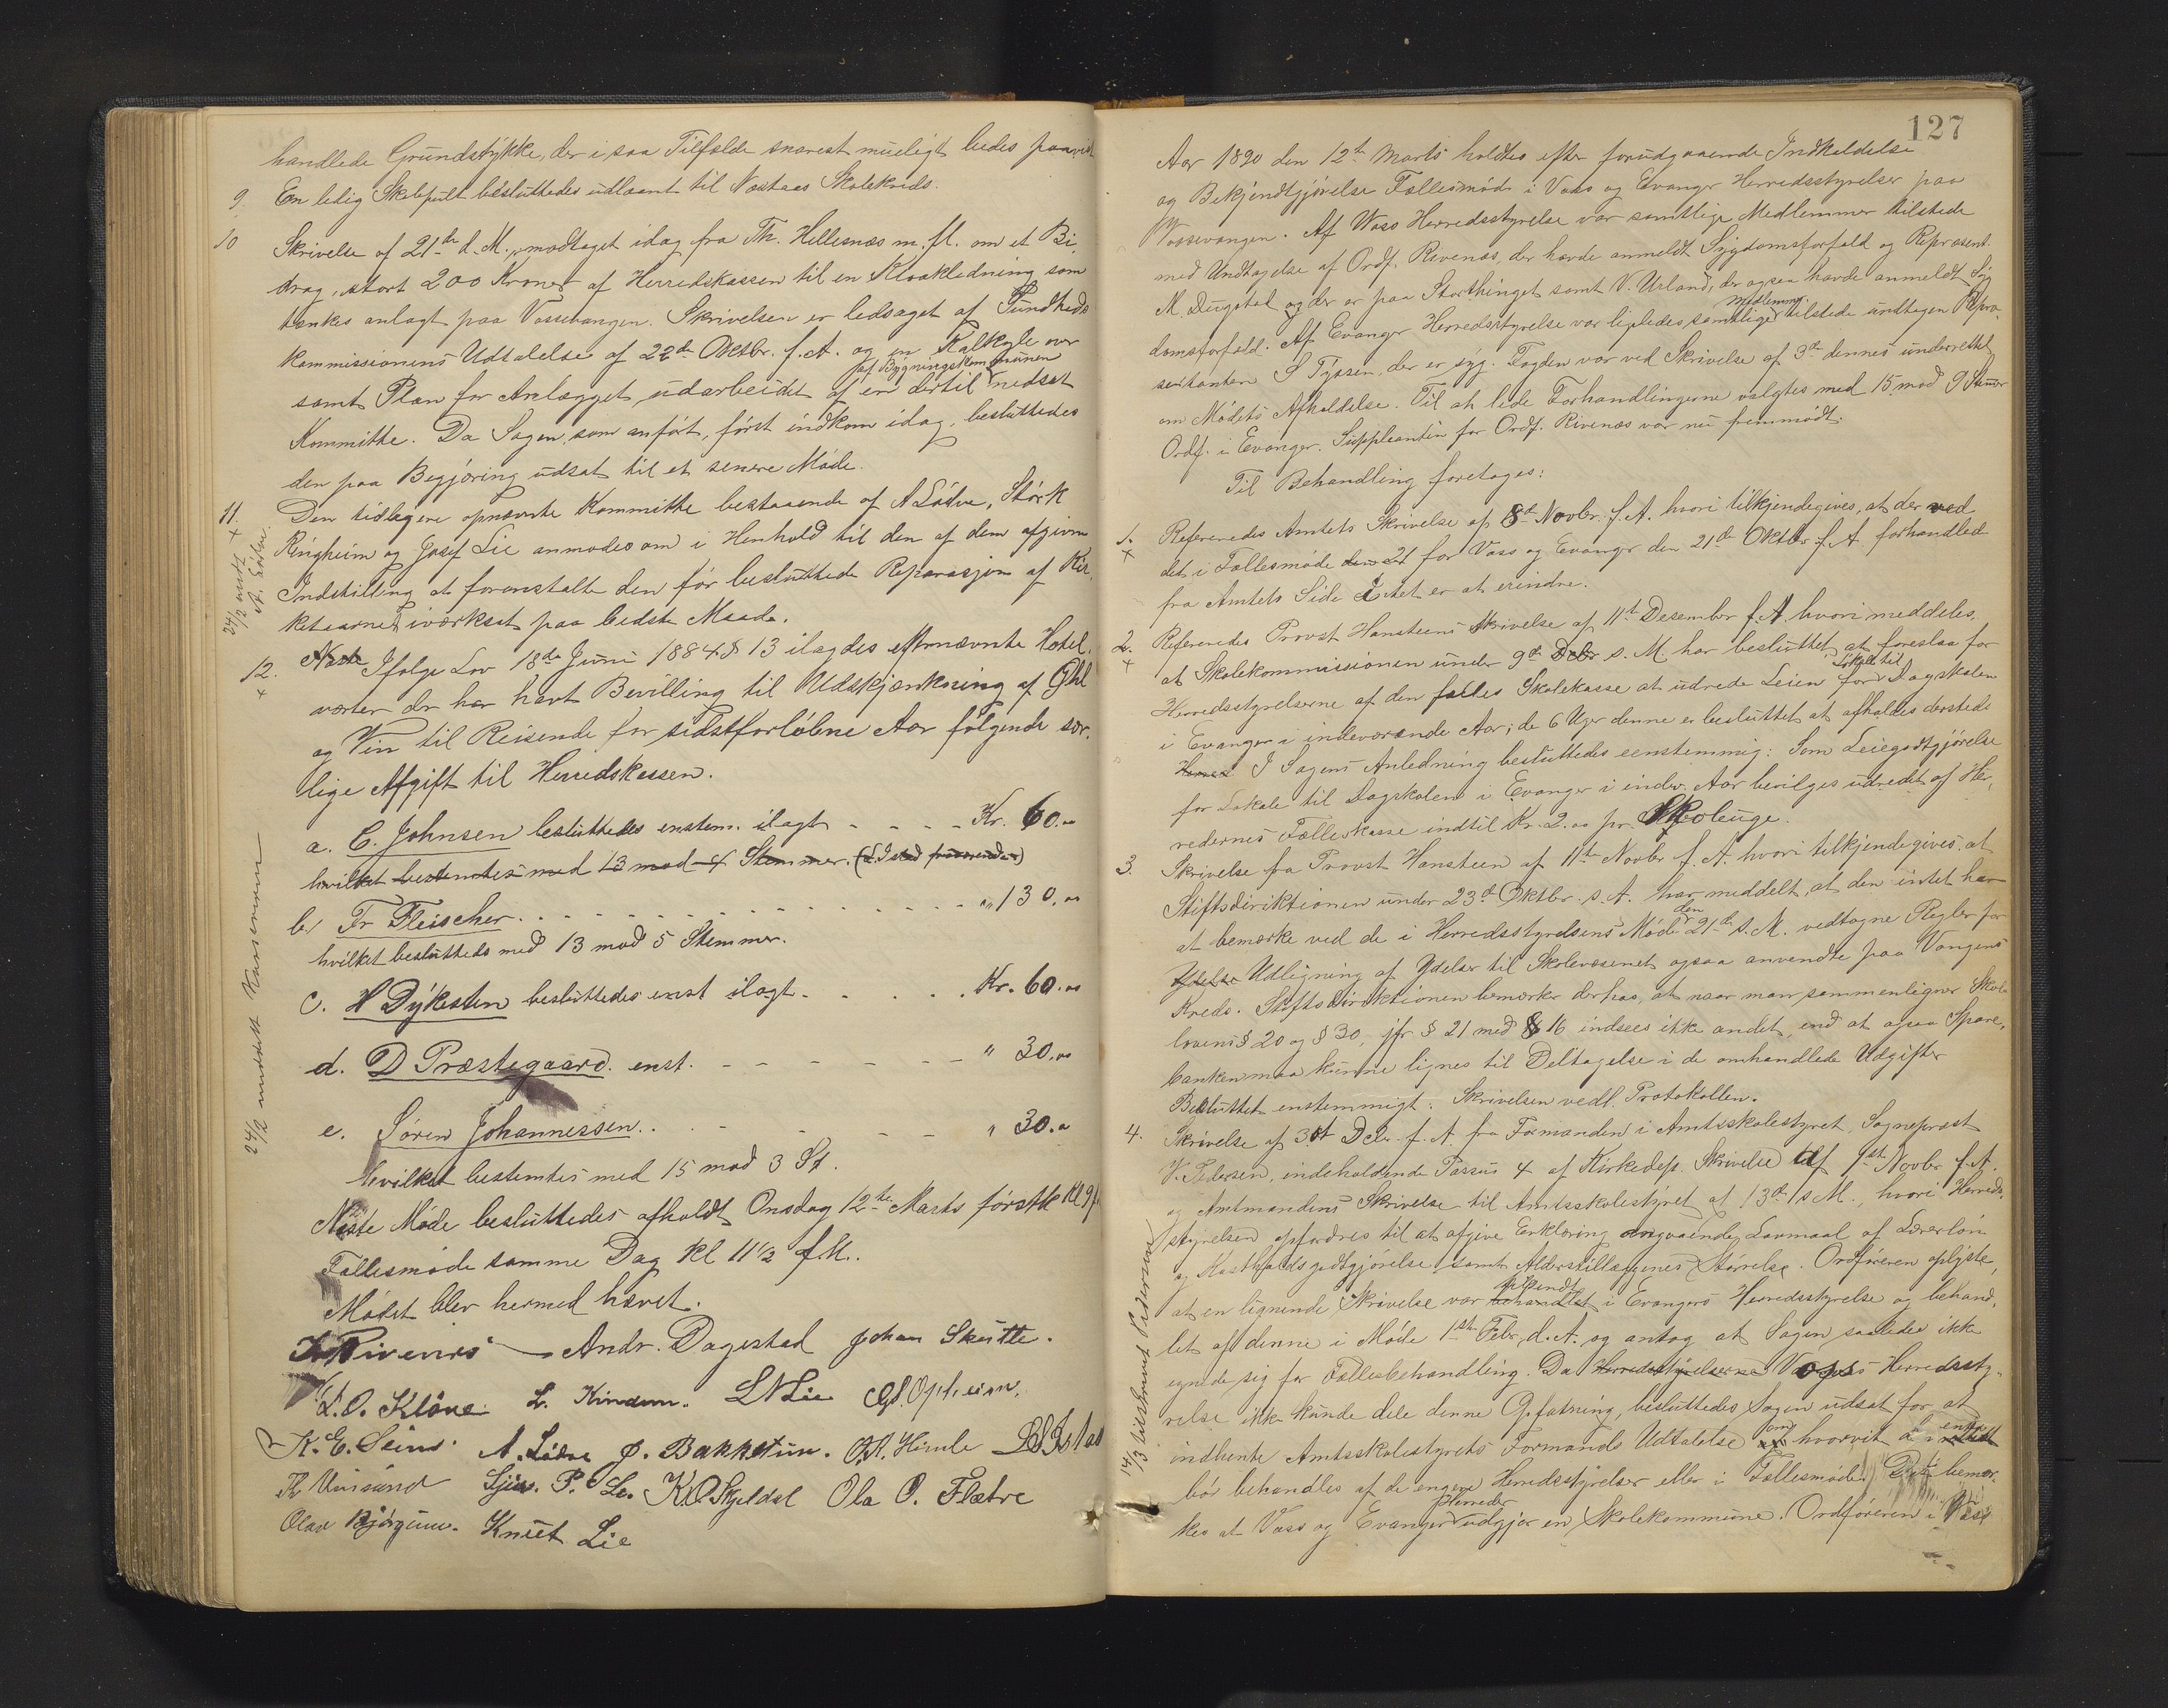 handlede Grundstykke, der i saa Tilfælde snarest mueligt bedes paavist
9. En ledig Skolepult besluttedes udlaant til Nœstaas Skolekreds.
10 Skrivelse af 21de d. M., modtaget idag fra Th. Hellesnæs m. fl. om et Bi-
drag, stort 200 Kroner af Herredskassen til en Kloakledning som
tænkes anlagt paa Vossevangen. Skrivelsen er ledsaget af Sundheds
kommissionens Udtalelse af 22de Oktbr. f. A. og en Kalkyle over
af Bygningskommunen
samt Plan for Anlægget udarbeidet af en dertil nedsat
Kommitte. Da Sagen, som anført, først indkom idag, besluttedes
den paa Begjæring udsat til et senere Møde.
11. Den tidligere opnævnte Kommitte bestaaende af A Lødve, Størk
x
24/2 medt A. Lødve.
Ringheim og Josef Lie anmodes om i Henhold til den af dem afgivne
Indstilling at foranstalte den før besluttede Reparasjon af Kir-
ketaarnet iværksat paa bedste Maade.
12. Næste Ifølge Lov 18de Juni 1884 § 13 ilægdes efternævnte Hotel-
x
værter der har havt Bevilling til Udskjænkning af Øhl
og Vin til Reisende for sidstforløbne Aar følgende sær-
lige Afgift til Herredskassen.
a. C. Johnsen besluttedes enstem. ilagt - - - - Kr. 60.00
hvilket bestemtes med 13 mod 4 Stemmer.
b) Fr Fleischer. - - - - - - " 130.00
hvilket besluttedes med 13 mod 5 Stemmer.
c. H Dykesten besluttedes enst ilagt - - - - Kr. 60.00
d. D Præstegaard. enst. - - - - - " 30.00
e. Søren Johannessen. - - - - - " 30.00
hvilket bestemtes med 15 mod 3 St.
24/2 meddelt Kassereren
Næste Møde besluttedes afholdt Onsdag 12te Marts førstk Kl 9 f
Fællesmøde samme Dag Kl 11 1/2 f M.
Mødet blev hermed hævet.
Rivenes Andr. Dagestad Johan Skutle.
L. O. Kløve L. Kindem. L N Lie Gd. Opheim.
K. E. Seim. A. Lødve O. Bakketun. O. A. Himle
Th Vinsand Sjur. P. Le. K O Skjeldal Ola O. Flatre
Olav Bjørgum. Knut Lie
127
Aar 1890 den 12te Marts holdtes efter forudgaaende Indkaldelse
og Bekjendtgjørelse Fællesmøde i Voss og Evanger Herredsstyrelser paa
Vossevangen. Af Voss Herredsstyrelse var samtlige Medlemmer tilstede
med Undtagelse af Ordf. Rivenæs, der havde anmeldt Sygdomsforfald og Repræsent.
M. Dugstad og der er paa Storthinget samt V. Urland, der ogsaa havde anmeldt Syg
Medlemmer
domsforfald. Af Evanger Herredsstyrelse var ligeledes samtlige tilstede undtagen Repræ-
sentanten S Tyssen, der er syg. Fogden var ved Skrivelse af 3de dennes underrettet
om Mødets Afholdelse. Til at lede Forhandlingerne valgtes med 15 mod 9 Stemmer
Ordf. i Evanger. Suppleanten for Ordf. Rivenæs var nu fremmødt.
Til Behandling foretoges:
1. Refereredes Amtets Skrivelse af 8de Novbr. f. A. hvori tilkjendegives, at der ved
x
det i Fællesmøde den 21 for Voss og Evanger den 21de Oktbr f. A forhandlede
fra Amtets Side Intet er at erindre.
2. Refereredes Provst Hansteens Skrivelse af 11te Desember f. A. hvori meddeles,
x
at Skolekommissionen under 9de Debr s. M. har besluttet at foreslaa for
Lokale til
Herredsstyrelserne af den fælles Skolekasse at udrede Leien for Dagskolen
i Evanger i indeværende Aar; de 6 Uger denne er besluttet at afholdes dersteds
I Sagens Anledning besluttedes eenstemmig: Som Leiegodtgjørelse
for Lokale til Dagskolen i Evanger i indev. Aar bevilges udredet af Her-
redernes Fælleskasse indtil Kr. 2.00 pr. Skoleuge.
3. Skrivelse fra Provst Hansteen af 11te Novbr f. A. hvori tilkjendegives, at
Stiftsdirektionen under 23de Oktbr. s. A. har meddelt, at den intet har
den
at bemærke ved de i Herredsstyrelsens Møde 21de s. M. vedtagne Regler for
Ydelse Udligning af Ydelser til Skolevæsenet ogsaa anvendte paa Vangens
Kreds. Stiftsdirektionen bemærker derhos, at naar man sammenligner Skole
lovens § 20 og § 30, jfr § 21 med § 16 indsees ikke andet, end at ogsaa Spare-
banken maa kunne lignes til Deltagelse i de omhandlede Udgifter
Besluttet enstemmigt: Skrivelsen vedl. Protokollen.
4. Skrivelse af 30te Debr. f. A. fra Formanden i Amtsskolestyret, Sognepræst
V. Pedersen, indeholdende Passus 4 af Kirkedep. Skrivelse af 1ste Novbr f. A.
og Amtmandens Skrivelse til Amtsskolestyret af 13de s M., hvori Herreds-
styrelsen opfordres til at afgive Erklæring angaaende Lavmaal af Lærerløn
og Kostholdsgodtgjørelse samt Alderstillægenes Størrelse. Ordføreren oplyste,
tilsendt
at en lignende Skrivelse var behandlet i Evangers Herredsstyrelse og behand-
let af denne i Møde 1ste Febr. d. A. og antog at Sagen saaledes ikke
egnede sig for Fællesbehandling. Da Herredsstyrelserne Voss Herredssty-
relse ikke kunde dele denne Opfatning, besluttedes Sagen udsat for at
indhente Amtsskolestyrets Formands Udtalelse om hvorvidt
bør behandles af de engere Herredsstyrelser eller i Fællesmøde. Det bemær-
Herreder
kes at Voss og Evanger udgjør en Skolekommune. Ordføreren i Voss
14/3 tilskrevet Pedersen